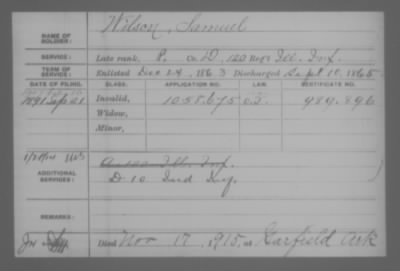 NAME OF SOLDIER: Wilson, Samuel
SERVICE: Late rank, P. Co. D, 120 Reg't Ill. Inf.
TERM OF SERVICE: Enlisted Dec 24, 1863 Discharged Sept 10, 1865
DATE OF FILING. CLASS. APPLICATION NO. LAW. CERTIFICATE NO.
1891 Sep 21 Invalid, 1058675 989.896
Widow,
Minor,
ADDITIONAL SERVICES: Inf.
D 10 Ind Inf.
REMARKS:
Died Nov 17, 1915, at Garfield Ark